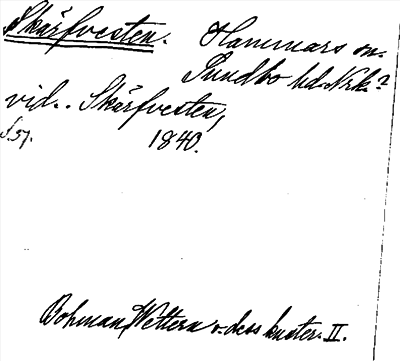 Skärfvesten. Hammars sn.
Sundbo hd. Nrk.?
vid. Skärfvesten,
s. 57. 1840.
Bohman, Wettern o. dess kuster. II.